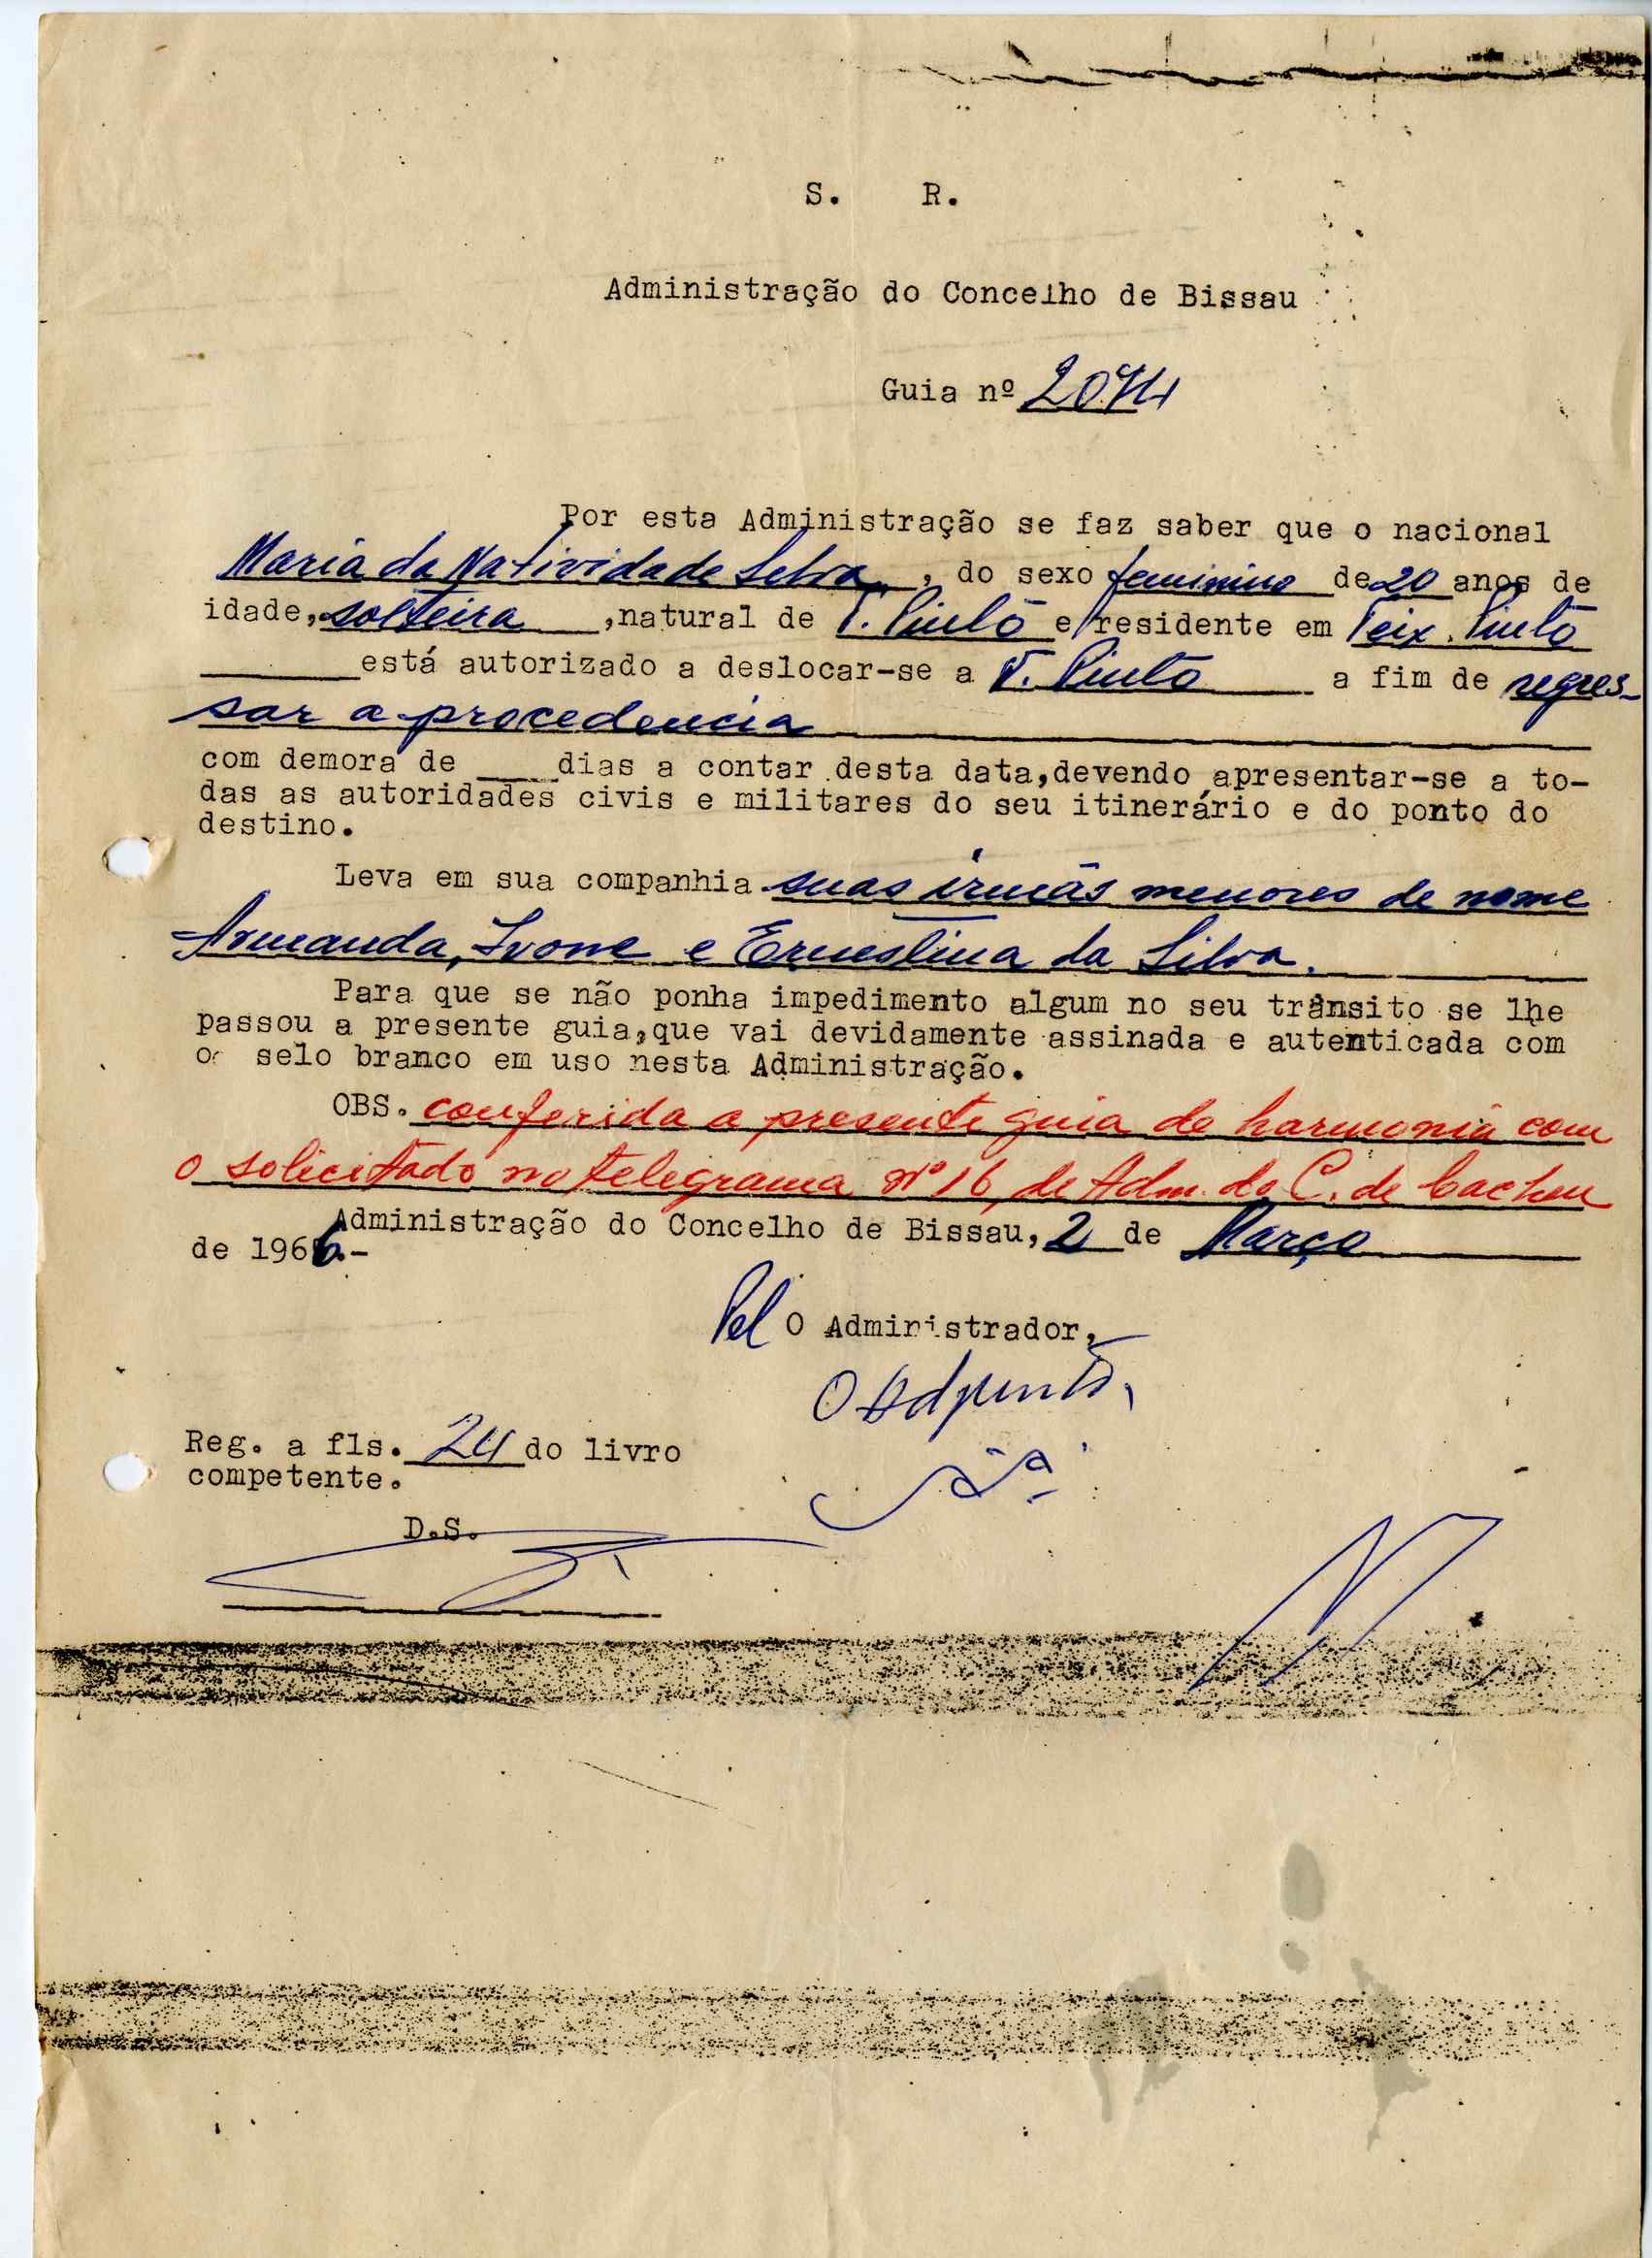 S. R.
Administração do Concelho de Bissau
Guia nº 2074
Por esta Administração se faz saber que o nacional
Maria da Natividade Silva, do sexo feminino de 20 anos de
idade, solteira ,natural de T. Pinto e residente em Teix. Pinto
está autorizado a deslocar-se a T. Pinto a fim de regres-
sar a procedencia
com demora de dias a contar desta data,devendo apresentar-se a to-
das as autoridades civis e militares do seu itinerário e do ponto do
destino.
Leva em sua companhia suas irmãs menores de nome
Armanda, Ivone e Ernestina da Silva.
Para que se não ponha impedimento algum no seu trânsito se lhe
passou a presente guia,que vai devidamente assinada e autenticada com
o selo branco em uso nesta Administração.
OBS. conferida a presente guia de harmonia com
o solicitado no telegrama nº 16, de Adm. do C. de Cacheu
Administração do Concelho de Bissau, 2 de Março
de 1966.-
Pel O Administrador,
O Adjunto,
Reg. a fls. 24 do livro
competente.
D.S.